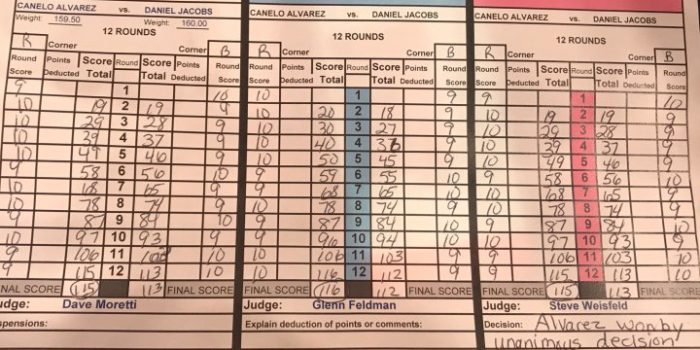 CANELO ALVAREZ vs. DANIEL JACOBS
Weight: 159.50 Weight: 160.00
12 ROUNDS
R Corner Corner B
Round Points Score Round Score Points Round
Score Deducted Total Total Deducted Score
9 1 10
10 19 2 19 9
10 29 3 28 9
10 39 4 37 9
10 49 5 46 9
9 58 6 56 10
10 68 7 65 9
10 78 8 74 9
9 87 9 84 10
10 97 10 93 9
9 106 11 103 10
9 115 12 113 10
NAL SCORE 115 113 FINAL SCORE
udge: Dave Moretti
spensions:
CANELO ALVAREZ vs. DANIEL JACOBS
12 ROUNDS
R Corner Corner B
Round Points Score Round Score Points Round
Score Deducted Total Total Deducted Score
10 1 9
10 20 2 18 9
10 30 3 27 9
10 40 4 36 9
10 50 5 45 9
9 59 6 55 10
9 68 7 65 10
10 78 8 74 9
9 87 9 84 10
9 96 10 94 10
10 106 11 103 9
10 116 12 112 9
FINAL SCORE 116 112 FINAL SCORE
Judge: Glenn Feldman
Explain deduction of points or comments:
CANELO ALVAREZ vs. DANIEL JACOBS
12 ROUNDS
R Corner Corner B
Round Points Score Round Score Points Round
Score Deducted Total Total Deducted Score
9 1 10
10 19 2 19 9
10 29 3 28 9
10 39 4 37 9
10 49 5 46 9
9 58 6 56 10
10 68 7 65 9
10 78 8 74 9
9 87 9 84 10
10 97 10 93 9
9 106 11 103 10
9 115 12 113 10
FINAL SCORE 115 113 FINAL SCORE
Judge: Steve Weisfeld
Decision: Alvarez won by
unanimous decision